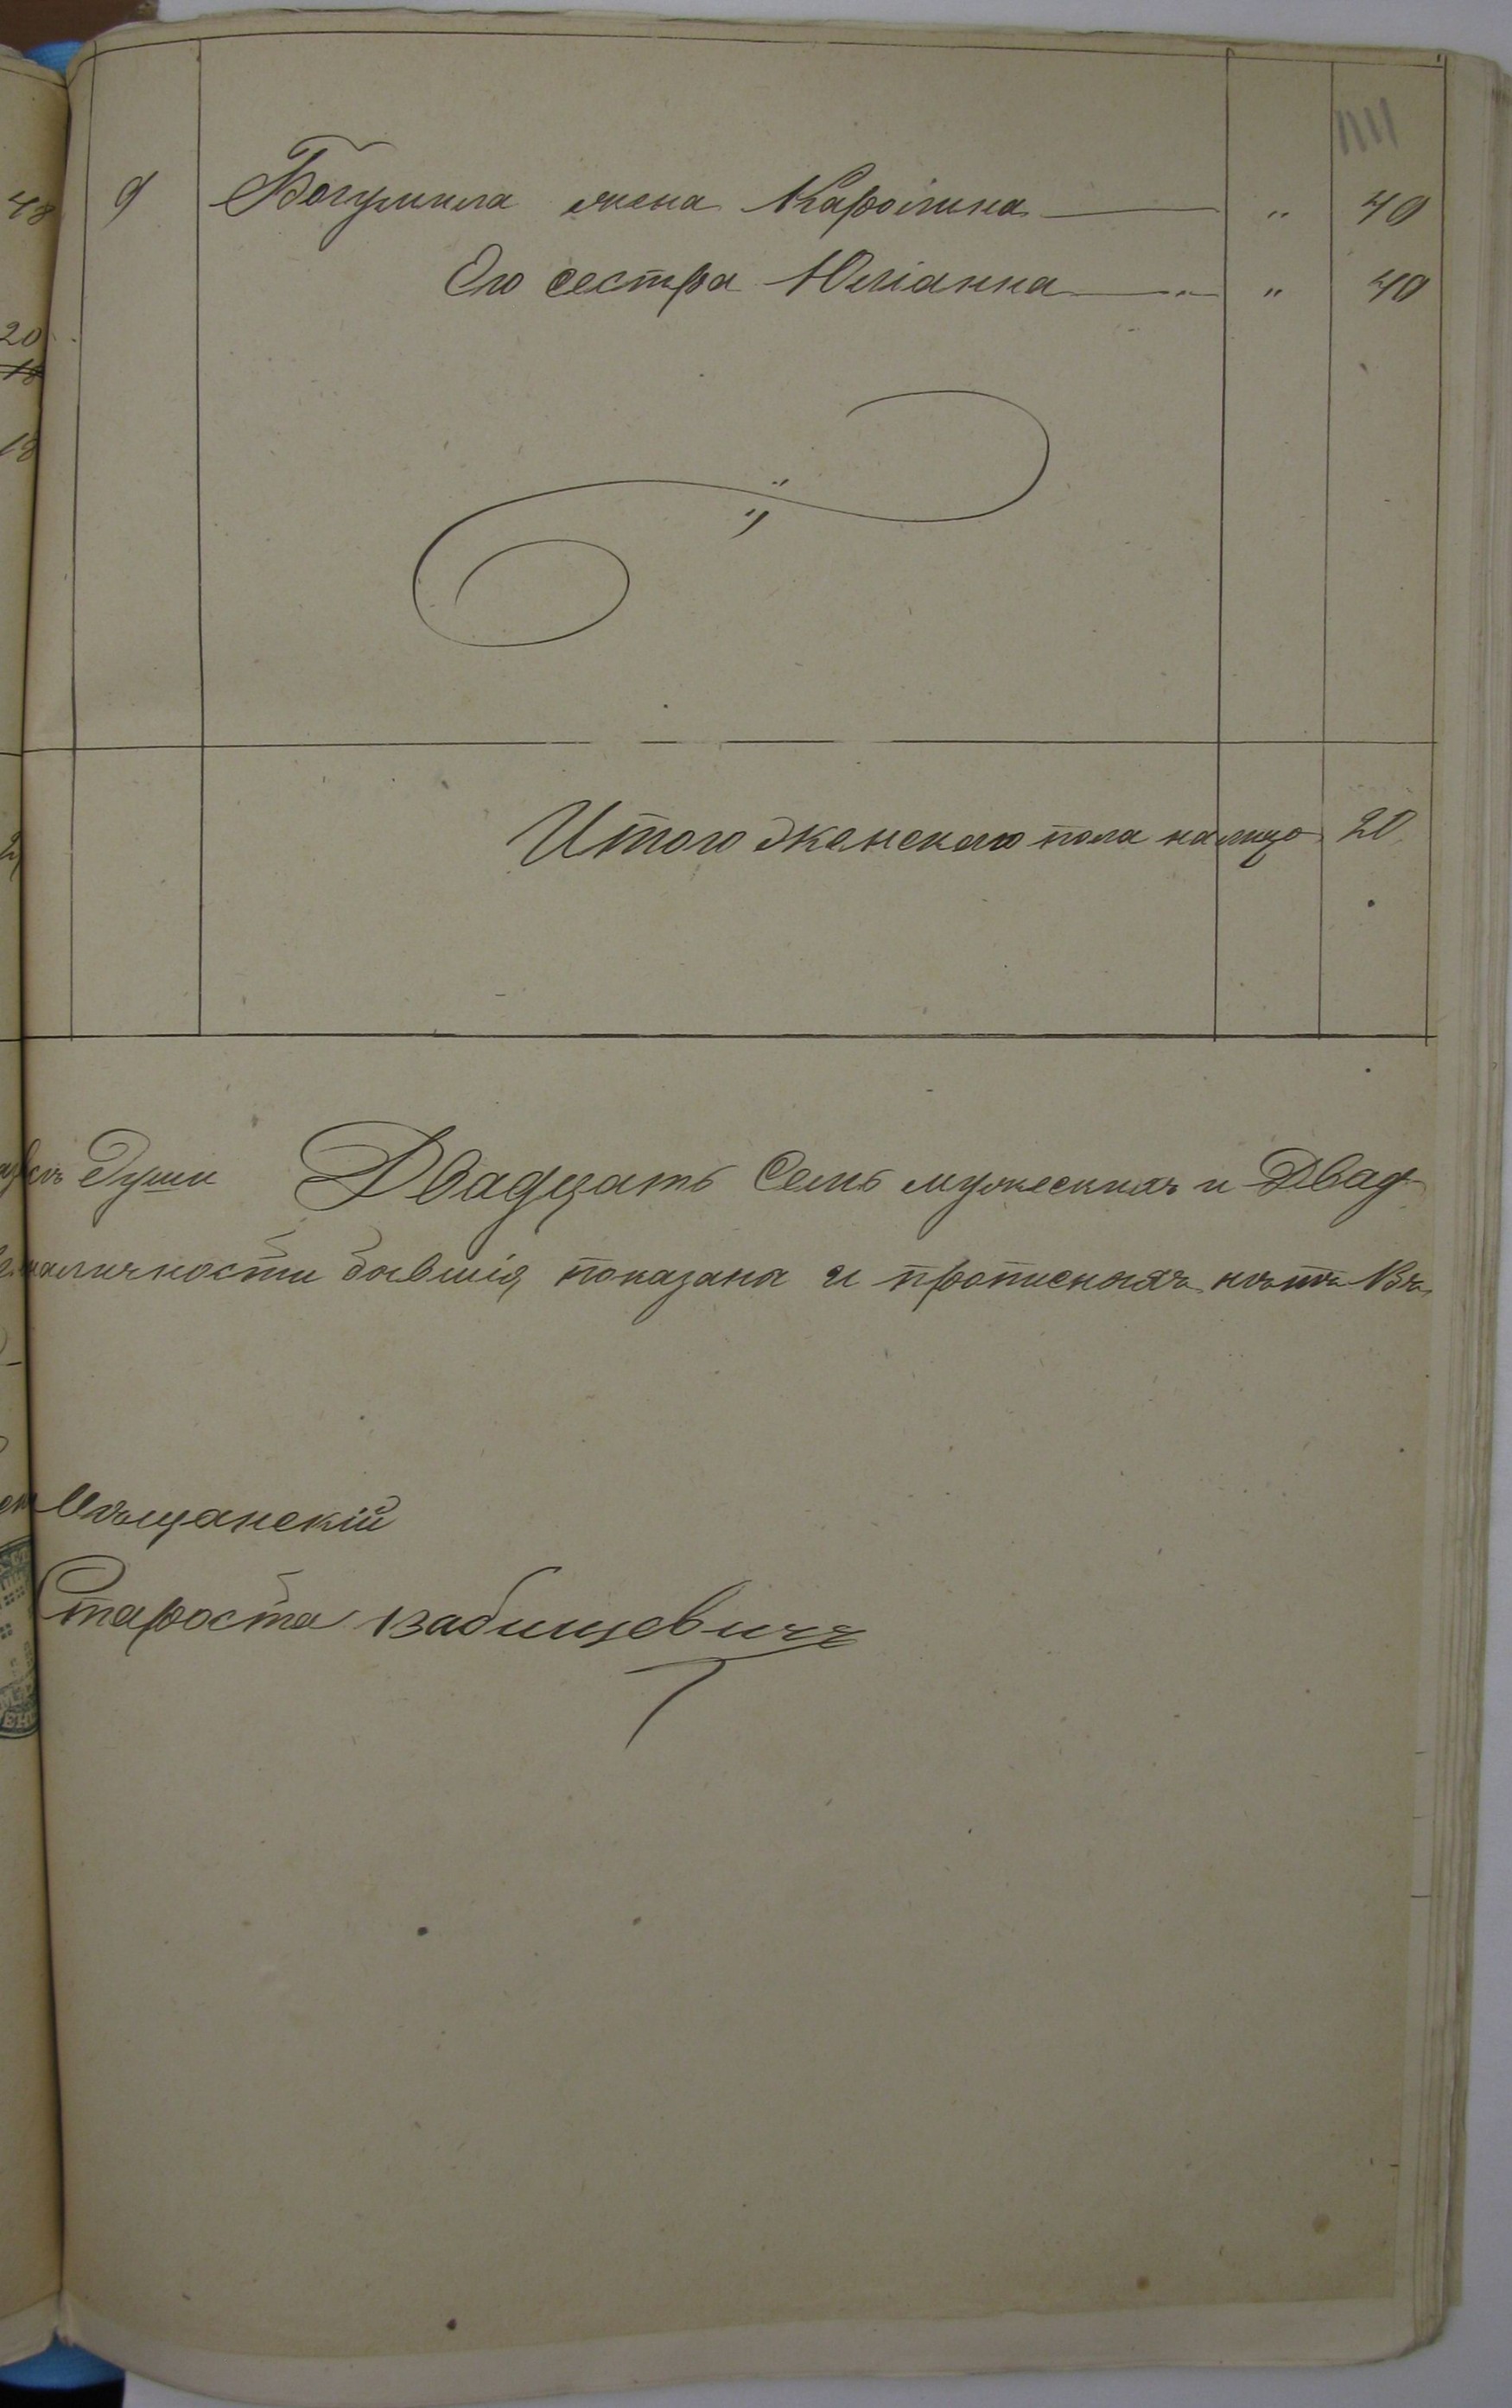 9 Богумила жена Каролина " 40
Его сестра Юліанна " 40
Итого женскаго пола налицо 20
души Двадцать Семь мужескихъ и Двад
наличности бывшія показана и прописныхъ нѣтъ Въ
Мѣщанскій
Староста
48
20
18